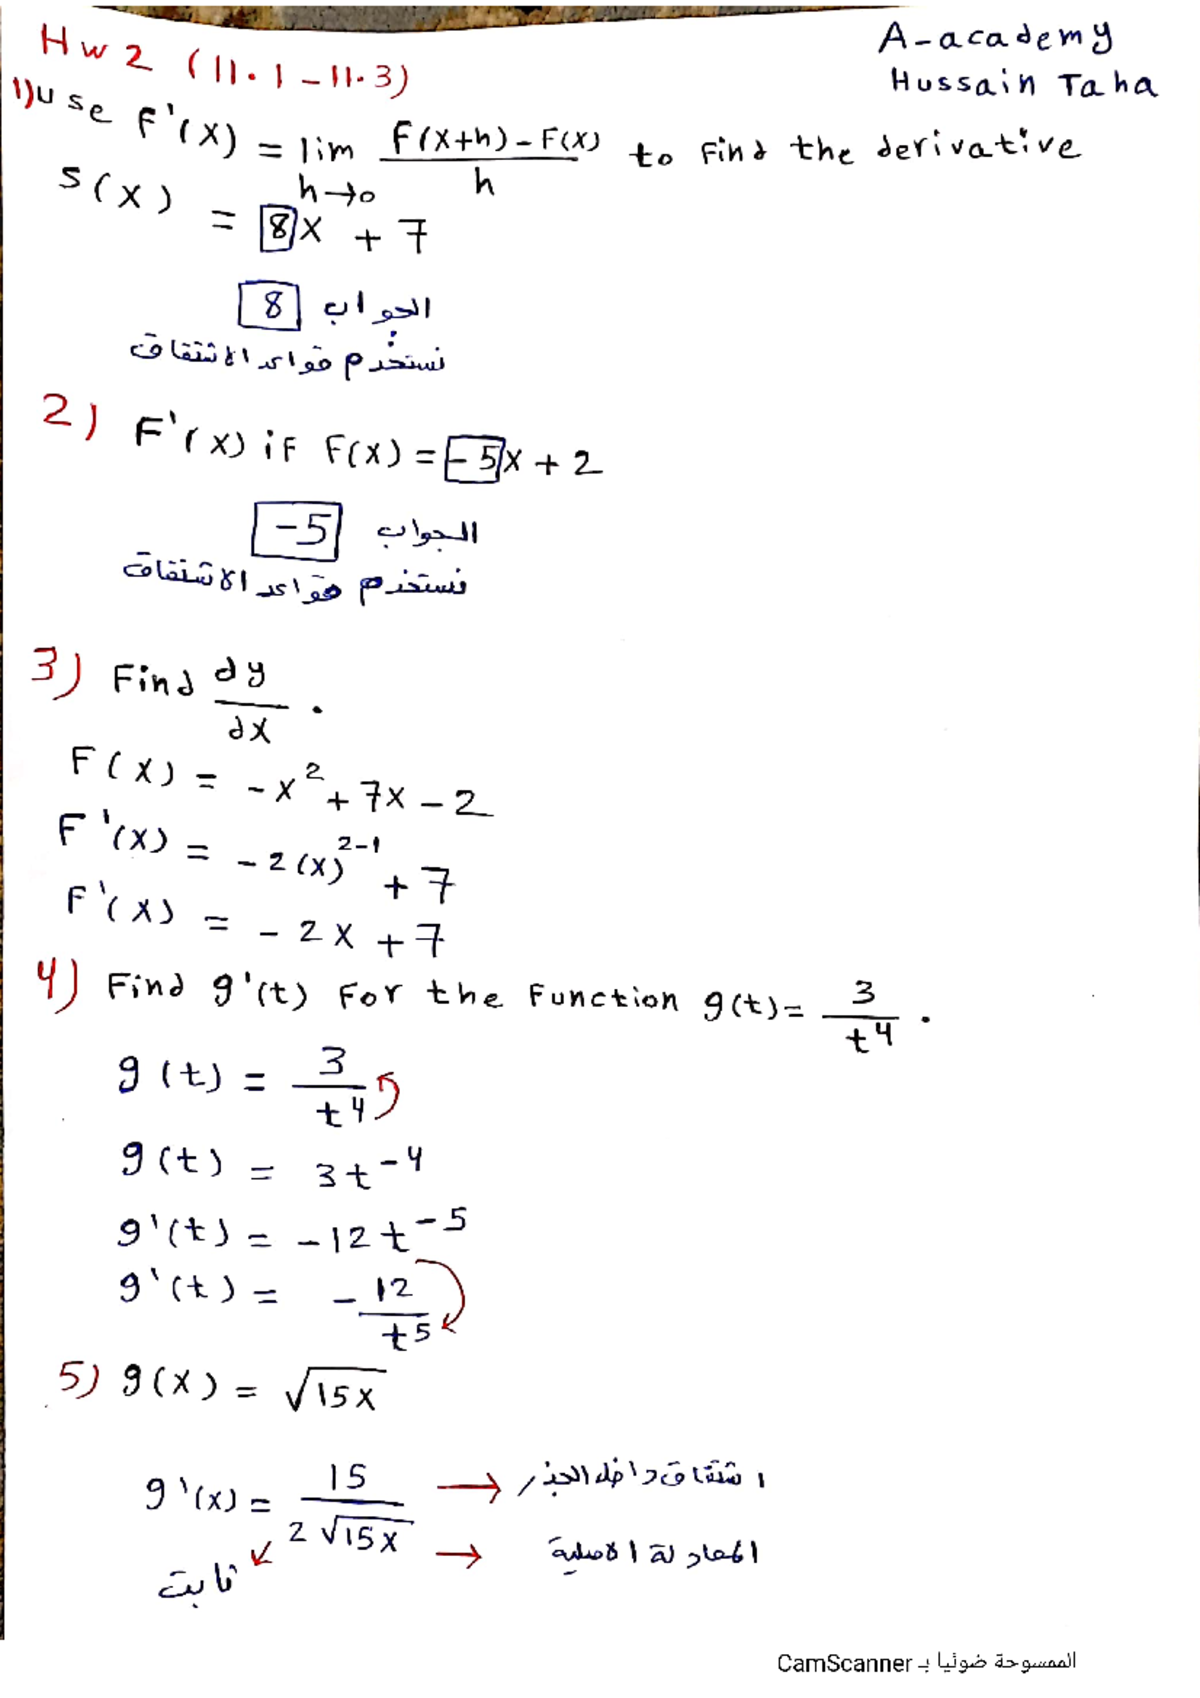 Hw 2 (11.1 - 11.3)
A-academy
Hussain Taha
1) use F'(x) = lim h→0 F(x+h) - F(x) / h to Find the derivative
S(x) = 8x + 7
الجواب 8
نستخدم قواعد الاشتقاق
2) F'(x) if F(x) = -5x + 2
الجواب -5
نستخدم قواعد الاشتقاق
3) Find dy/dx .
F(x) = -x² + 7x - 2
F'(x) = -2(x)²⁻¹ + 7
F'(x) = -2x + 7
4) Find g'(t) For the Function g(t) = 3/t⁴ .
g(t) = 3/t⁴
g(t) = 3t⁻⁴
g'(t) = -12t⁻⁵
g'(t) = -12/t⁵
5) g(x) = √15x
g'(x) = 15 / 2√15x
→ اشتقاق داخل الجذر
→ المعادلة الاصلية
ثابت
الممسوحة ضوئيا بـ CamScanner